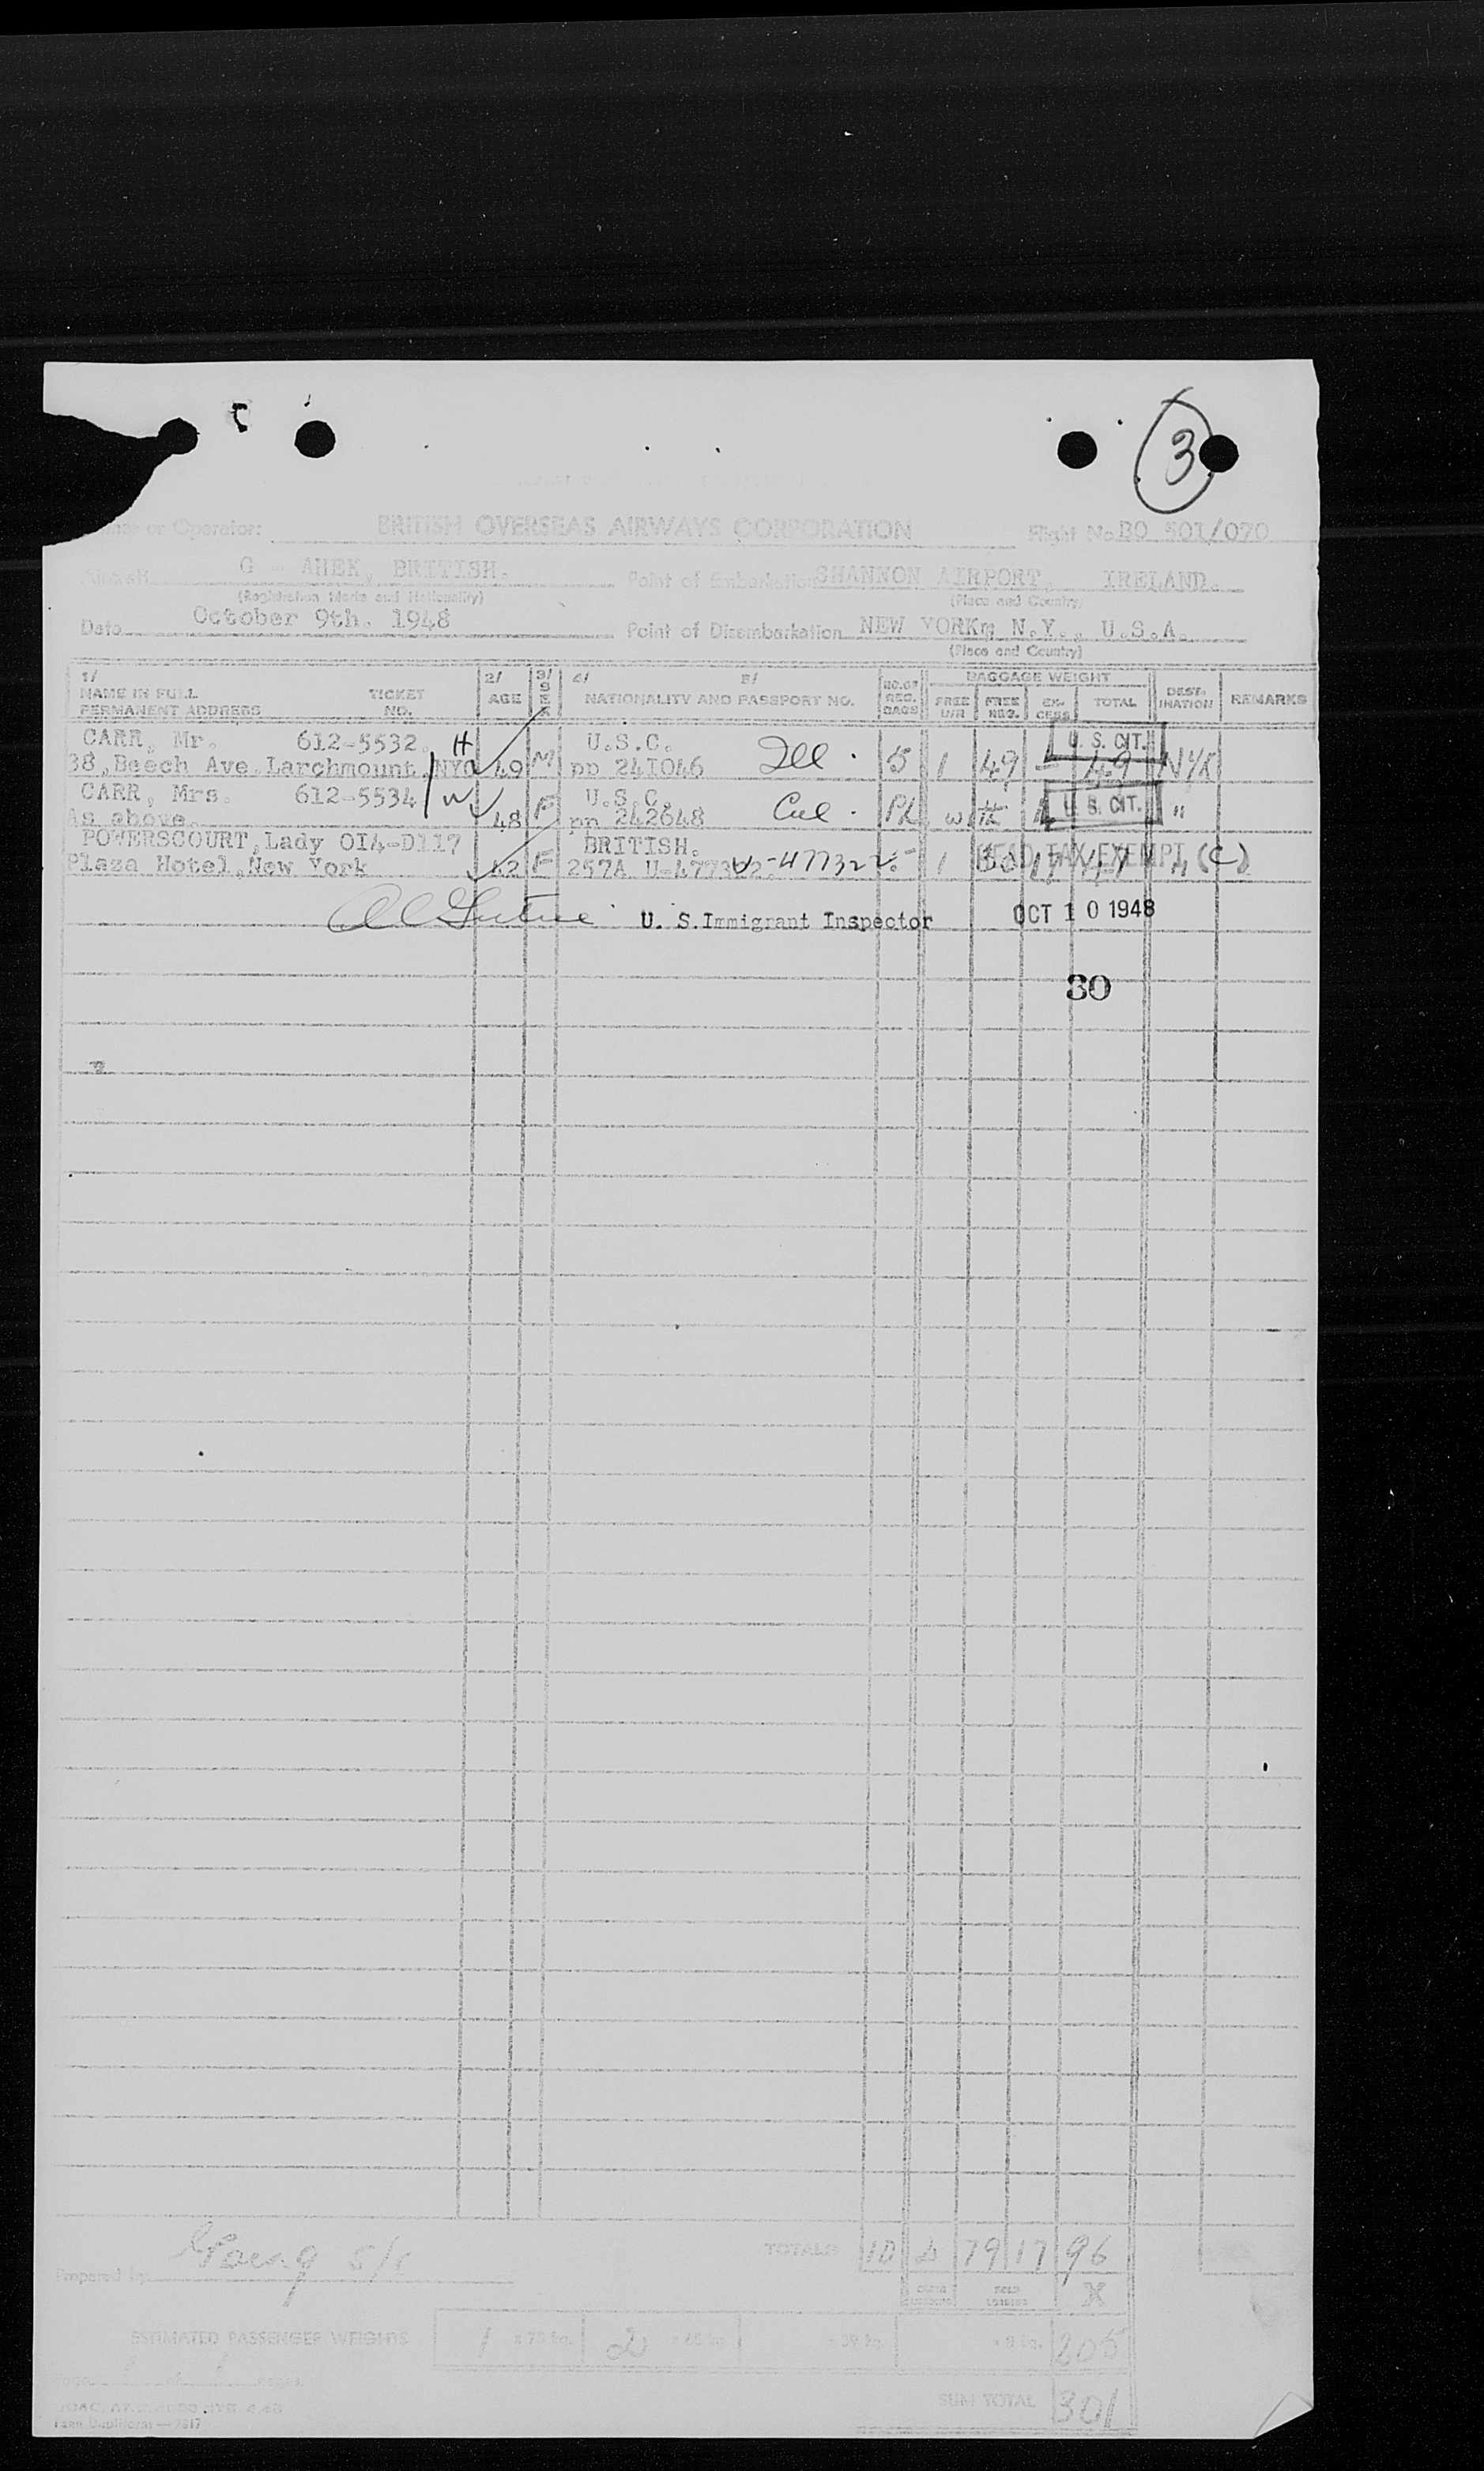 3
or Operator: BRITISH OVERSEAS AIRWAYS CORPORATION Flight No. BO 501/070
Aircraft G - AHEK, BRITISH. Point of Embarkation SHANNON AIRPORT, IRELAND.
(Registration Marks and Nationality) (Place and Country)
Date October 9th. 1948 Point of Disembarkation NEW YORK, N.Y., U.S.A.
(Place and Country)
1/ 2/ 3/ 4/ 5/ BAGGAGE WEIGHT
NAME IN FULL TICKET AGE SEX NATIONALITY AND PASSPORT NO. NO. OF REG. BAGS FREE U/R FREE REG. EX-CESS TOTAL DEST-INATION REMARKS
PERMANENT ADDRESS NO.
CARR, Mr. 612-5532. H U.S.C. U. S. CIT.
38, Beech Ave. Larchmount, NYC 49 M pp 24I046 Ill. 5 1 49 - 49 NYK
CARR, Mrs. 612-5534 W U.S.C. U. S. CIT.
As above. 48 F pp 242648 "
POWERSCOURT, Lady OI4-D117 BRITISH. HEAD TAX EXEMPT (C)
Plaza Hotel, New York 42 F 257A U-477322 5 1 30 17 47 "
U. S. Immigrant Inspector OCT 10 1948
30
Prepared by TOTALS 10 2 79 17 96
X
ESTIMATED PASSENGER WEIGHTS 1 x 75 kg. 2 x 65 kg. x 39 kg. x 8 kg. 205
SUM TOTAL 301